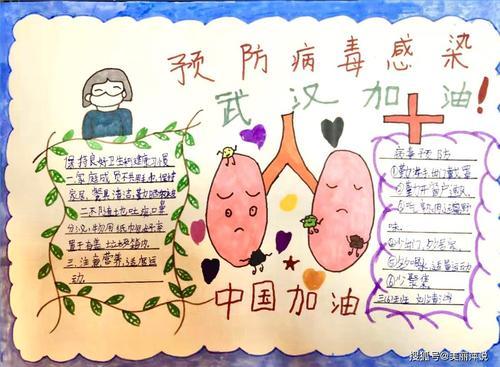 预防病毒感染
武汉加油!
保持良好卫生和健康习惯
一.家庭成员不共用毛巾,保持
家居、餐具清洁,勤晒衣被
二.不随地吐痰,口鼻
分泌物用纸巾包好,弃
置于有盖垃圾箱内
三.注意营养,适度运
动.
病毒预防
①勤洗手,出门戴口罩
②要打开窗户通风
③吃
味.
④少出门,少
⑤多喝水,适量运动
⑥少聚集
中国加油
搜狐号@美丽萍说